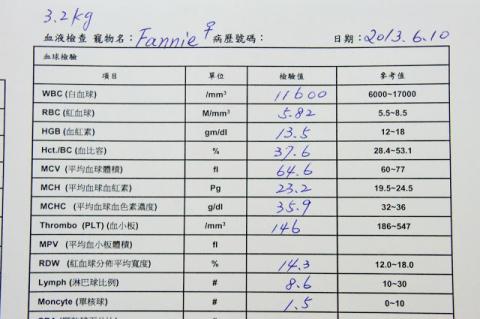 3.2kg
血液檢查 寵物名：Fannie ♀ 病歷號碼： 日期：2013.6.10
血球檢驗
項目 單位 檢驗值 參考值
WBC (白血球) /mm³ 11600 6000~17000
RBC (紅血球) M/mm³ 5.82 5.5~8.5
HGB (血紅素) gm/dl 13.5 12~18
Hct./BC (血比容) % 37.6 28.4~53.1
MCV (平均血球體積) fl 64.6 60~77
MCH (平均血球血紅素) Pg 23.2 19.5~24.5
MCHC (平均血球血色素濃度) g/dl 35.9 32~36
Thrombo (PLT) (血小板) /mm³ 146 186~547
MPV (平均血小板體積) fl
RDW (紅血球分佈平均寬度) % 14.3 12.0~18.0
Lymph (淋巴球比例) # 8.6 10~30
Moncyte (單核球) # 1.5 0~10